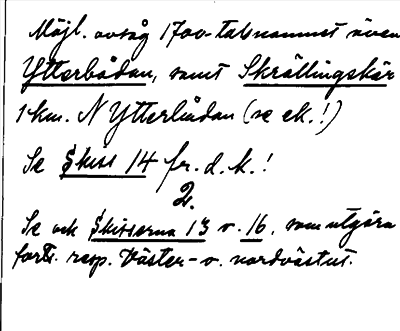 Möjl. avsåg 1700-talsnamnet även
Ytterbådan, samt Skrållingskär
1 km. N Ytterbådan (se ek.!)
Se Skiss 14 fr. d. k.!
2.
Se ock Skisserna 13 o. 16, som utgöra
forts. resp. Väster- o. nordvästut.